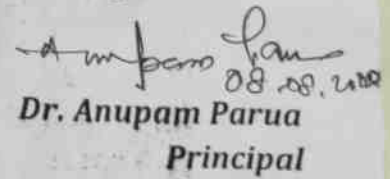 Anupam Parua
08.08.2022
Dr. Anupam Parua
Principal